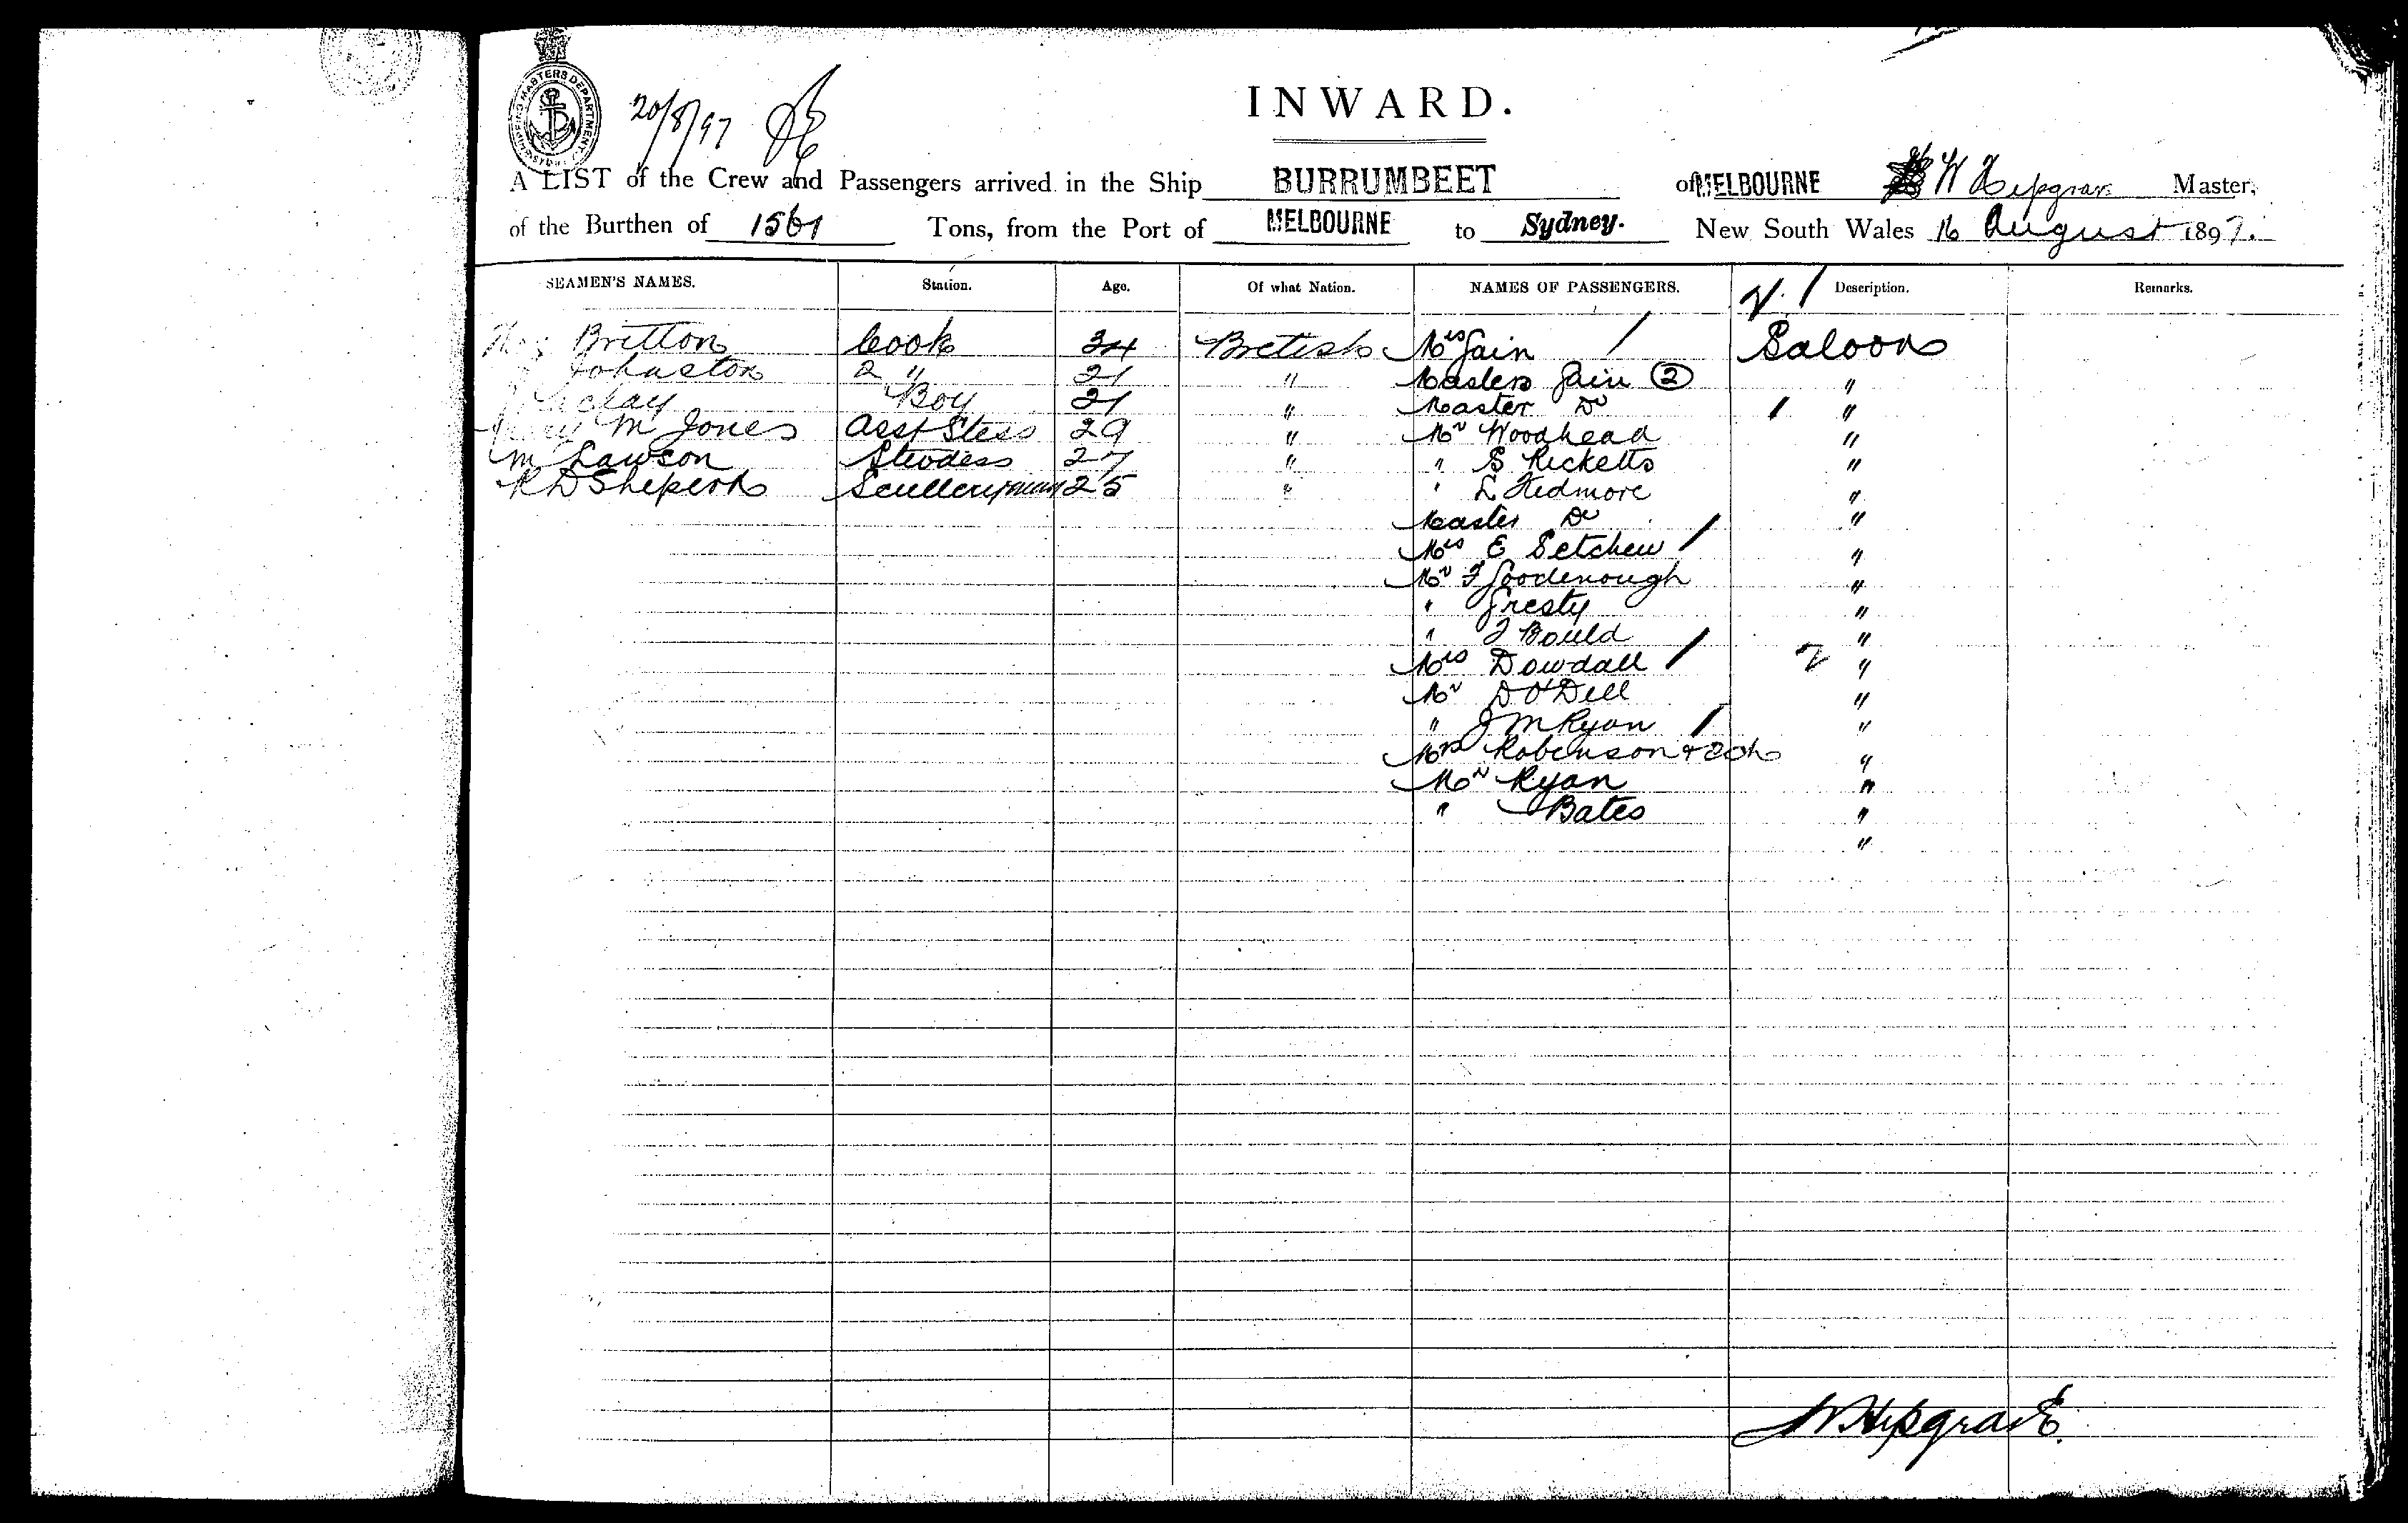 SHIPPING MASTERS DEPARTMENT SYDNEY
20/8/97
INWARD.
A LIST of the Crew and Passengers arrived in the Ship BURRUMBEET of MELBOURNE W Hepgrave Master,
of the Burthen of 1561 Tons, from the Port of MELBOURNE to Sydney. New South Wales 16 August 1897.
SEAMEN'S NAMES. Station. Age. Of what Nation. NAMES OF PASSENGERS. Description. Remarks.
Britton Cook 34 British Mrs Jain / Saloon
Johnston 2 " 21 " Masters Jain 2 "
Boy 21 " Master Do 1 "
M Jones Asst Stess 29 " Mr Woodhead "
M Lawson Stewdess 27 " " S Ricketts "
R D Sheperd Scullerymun 25 " " L Hedmore "
Master Do "
Mrs E Setchew / "
Mr F Goodenough "
" Gresty "
" J Bould "
Mrs Dowdall / 2 "
Mr D O'Dell "
" J M Ryan / "
Mrs Robinson + 2 Ch "
Mr Ryan "
" Bates "
"
W Hepgrave